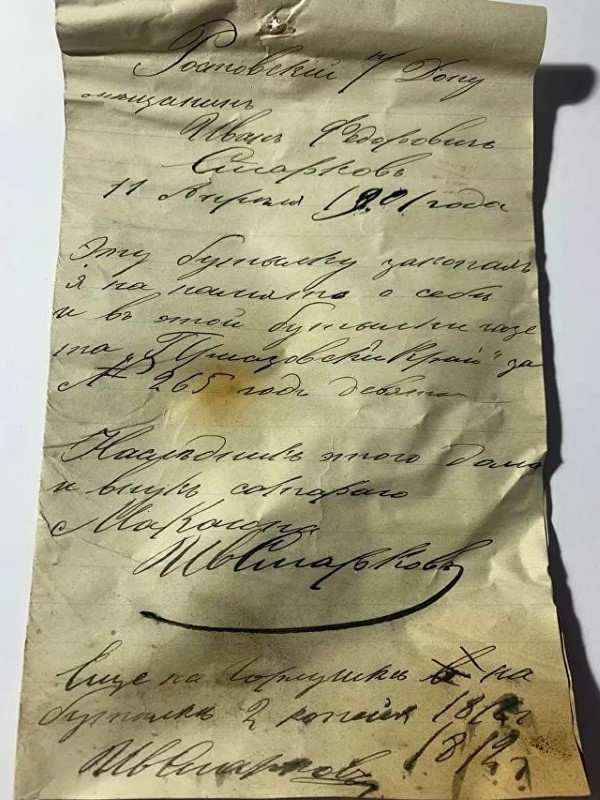 Ростовскiй н/ Дону
мѣщанинъ
Иванъ Федоровичъ
Старковъ
11 Апреля 1901 года
Эту бутылку закопалъ
я на память о себѣ
и въ этой бутылки газе
та „Приазовскiй Край" за
№ 265 годъ девяты
Наслѣдникъ этого дома
и внукъ стараго
Макогона
Ив Старковъ
Еще на горлушкѣ на
бутылкѣ 2 копейки 181
1812 г
Ив Старковъ